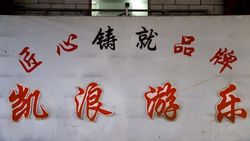 匠心铸就品牌
凯浪游乐